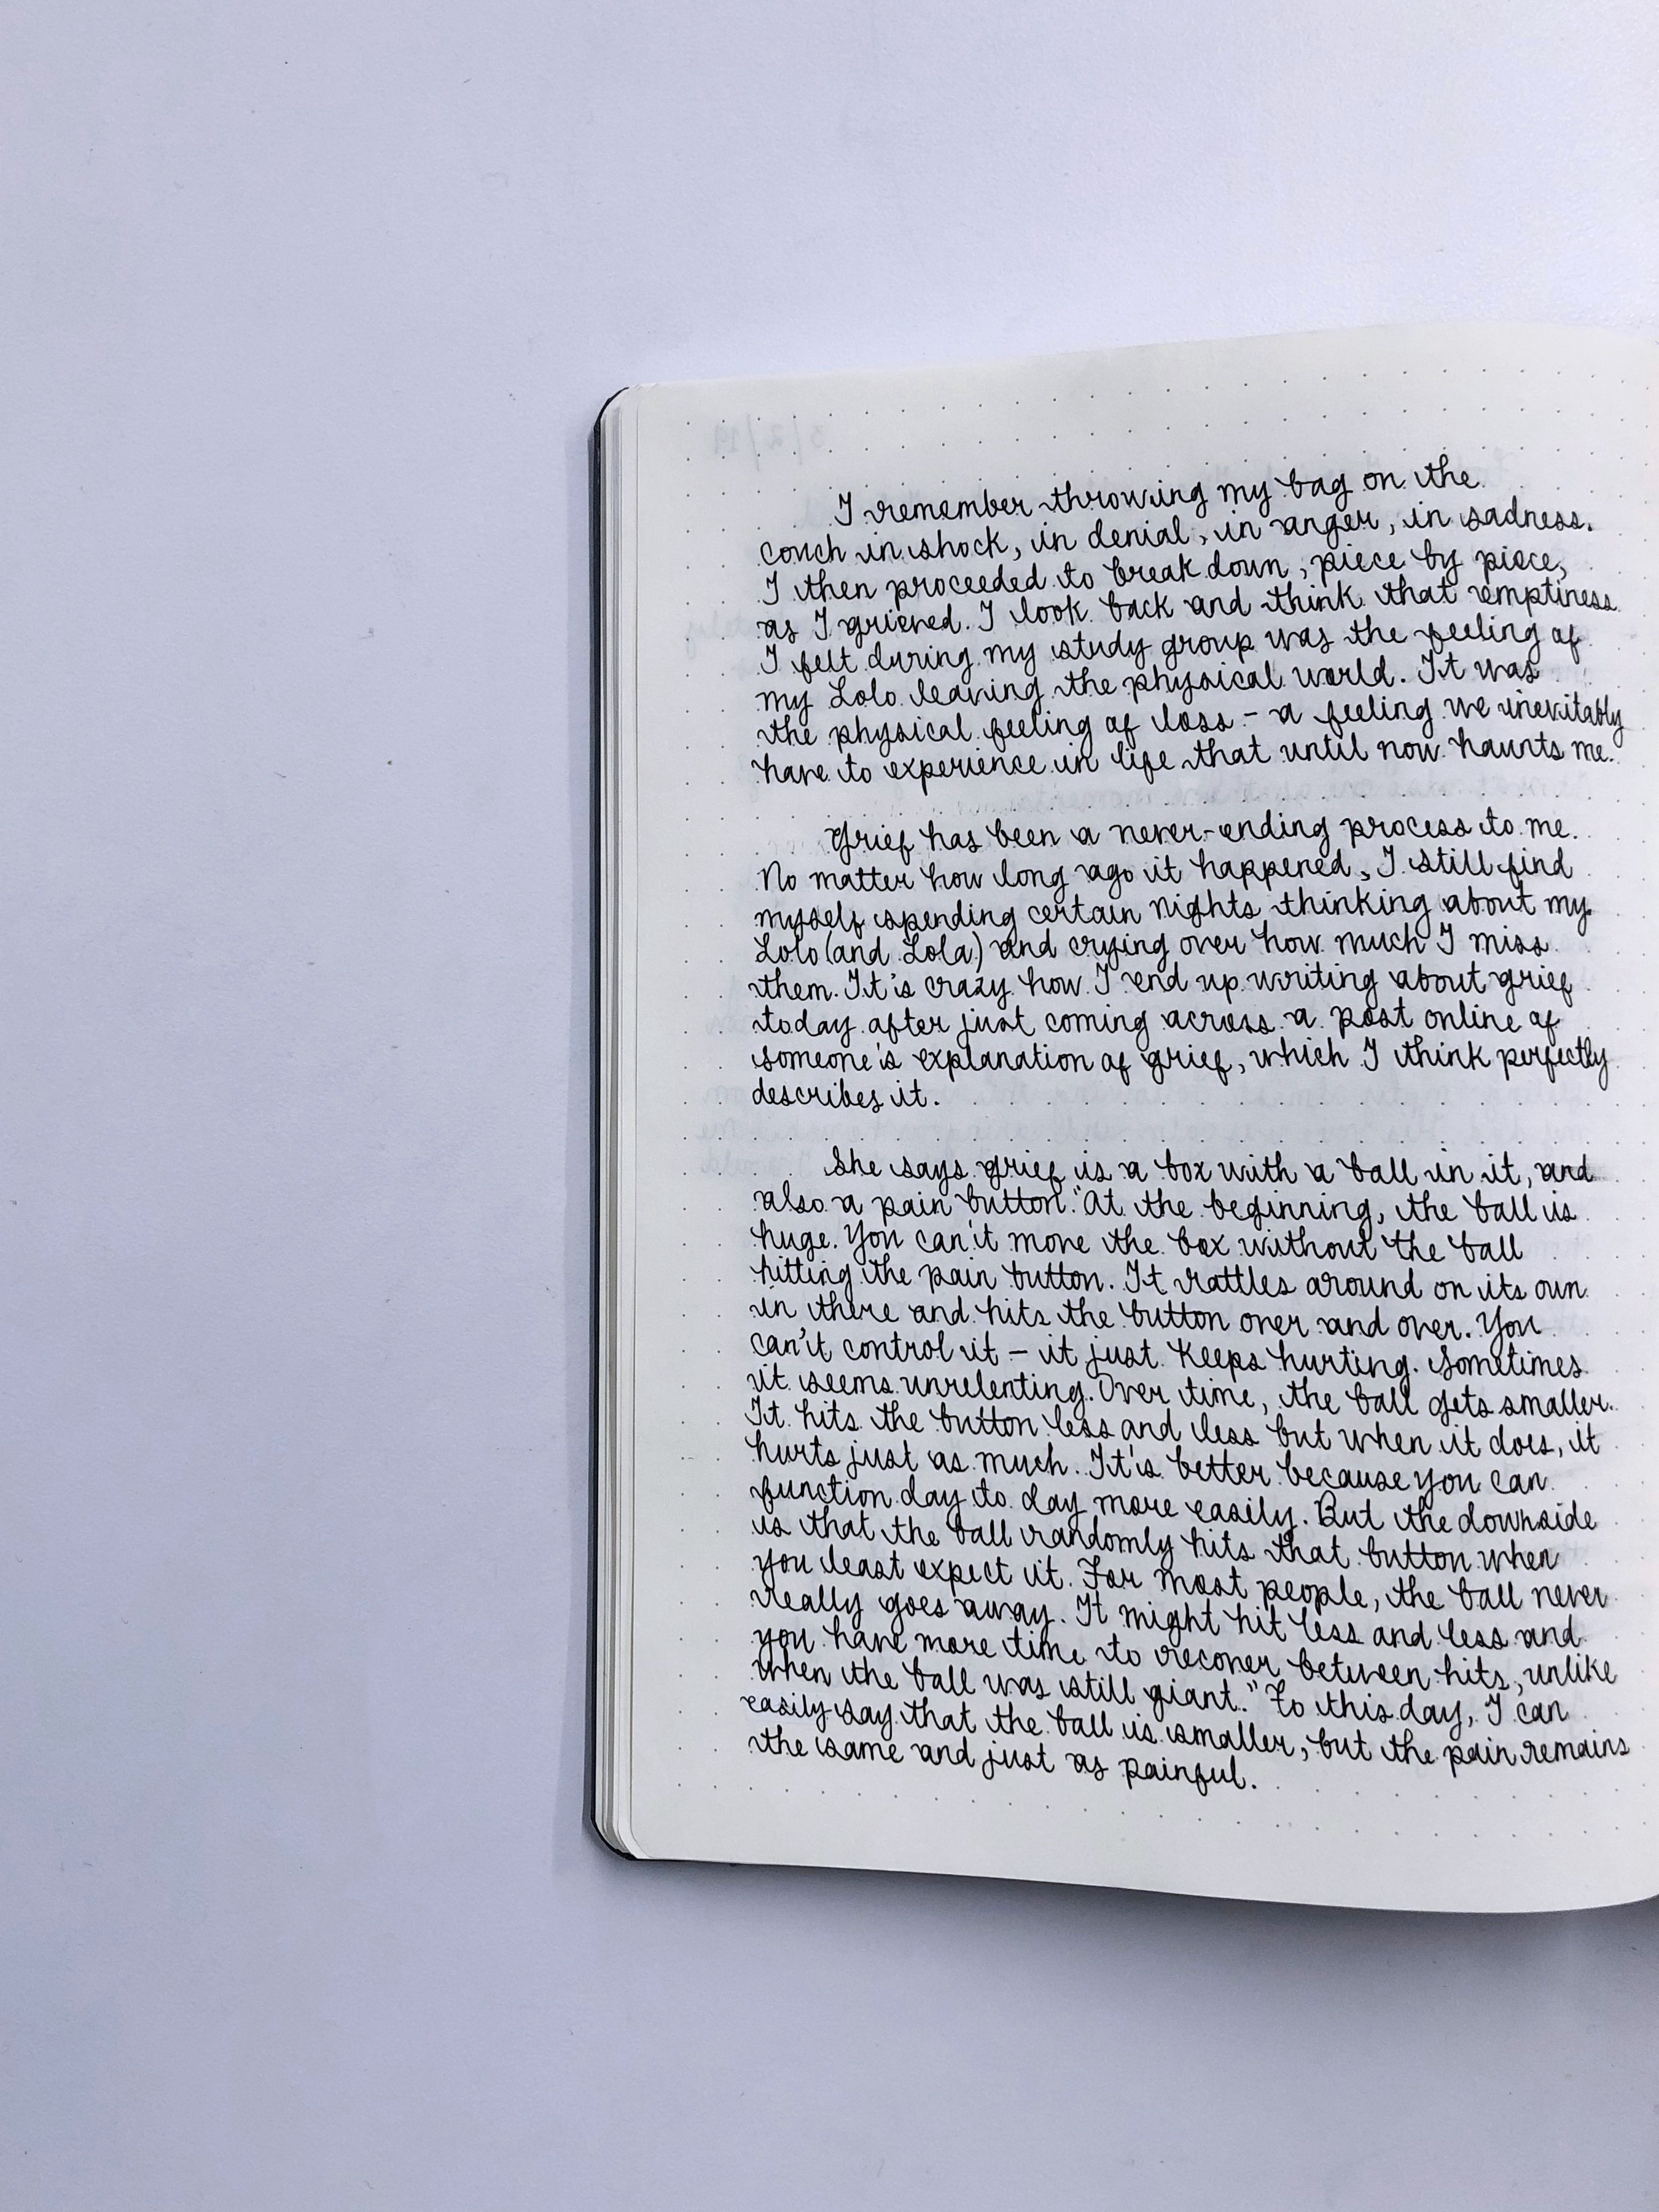 I remember throwing my bag on the
couch in shock, in denial, in anger, in sadness.
I then proceeded to break down, piece by piece,
as I grieved. I look back and think that emptiness
I felt during my study group was the feeling of
my Lolo leaving the physical world. It was
the physical feeling of loss - a feeling we inevitably
have to experience in life that until now haunts me.
Grief has been a never-ending process to me.
No matter how long ago it happened, I still find
myself spending certain nights thinking about my
Lolo (and Lola) and crying over how much I miss
them. It's crazy how I end up writing about grief
today after just coming across a post online of
someone's explanation of grief, which I think perfectly
describes it.
She says grief is a box with a ball in it, and
also a pain button. "At the beginning, the ball is
huge. You can't move the box without the ball
hitting the pain button. It rattles around on its own
in there and hits the button over and over. You
can't control it - it just keeps hurting. Sometimes
it seems unrelenting. Over time, the ball gets smaller.
It hits the button less and less but when it does, it
hurts just as much. It's better because you can
function day to day more easily. But the downside
is that the ball randomly hits that button when
you least expect it. For most people, the ball never
really goes away. It might hit less and less and
you have more time to recover between hits, unlike
when the ball was still giant." To this day, I can
easily say that the ball is smaller, but the pain remains
the same and just as painful.